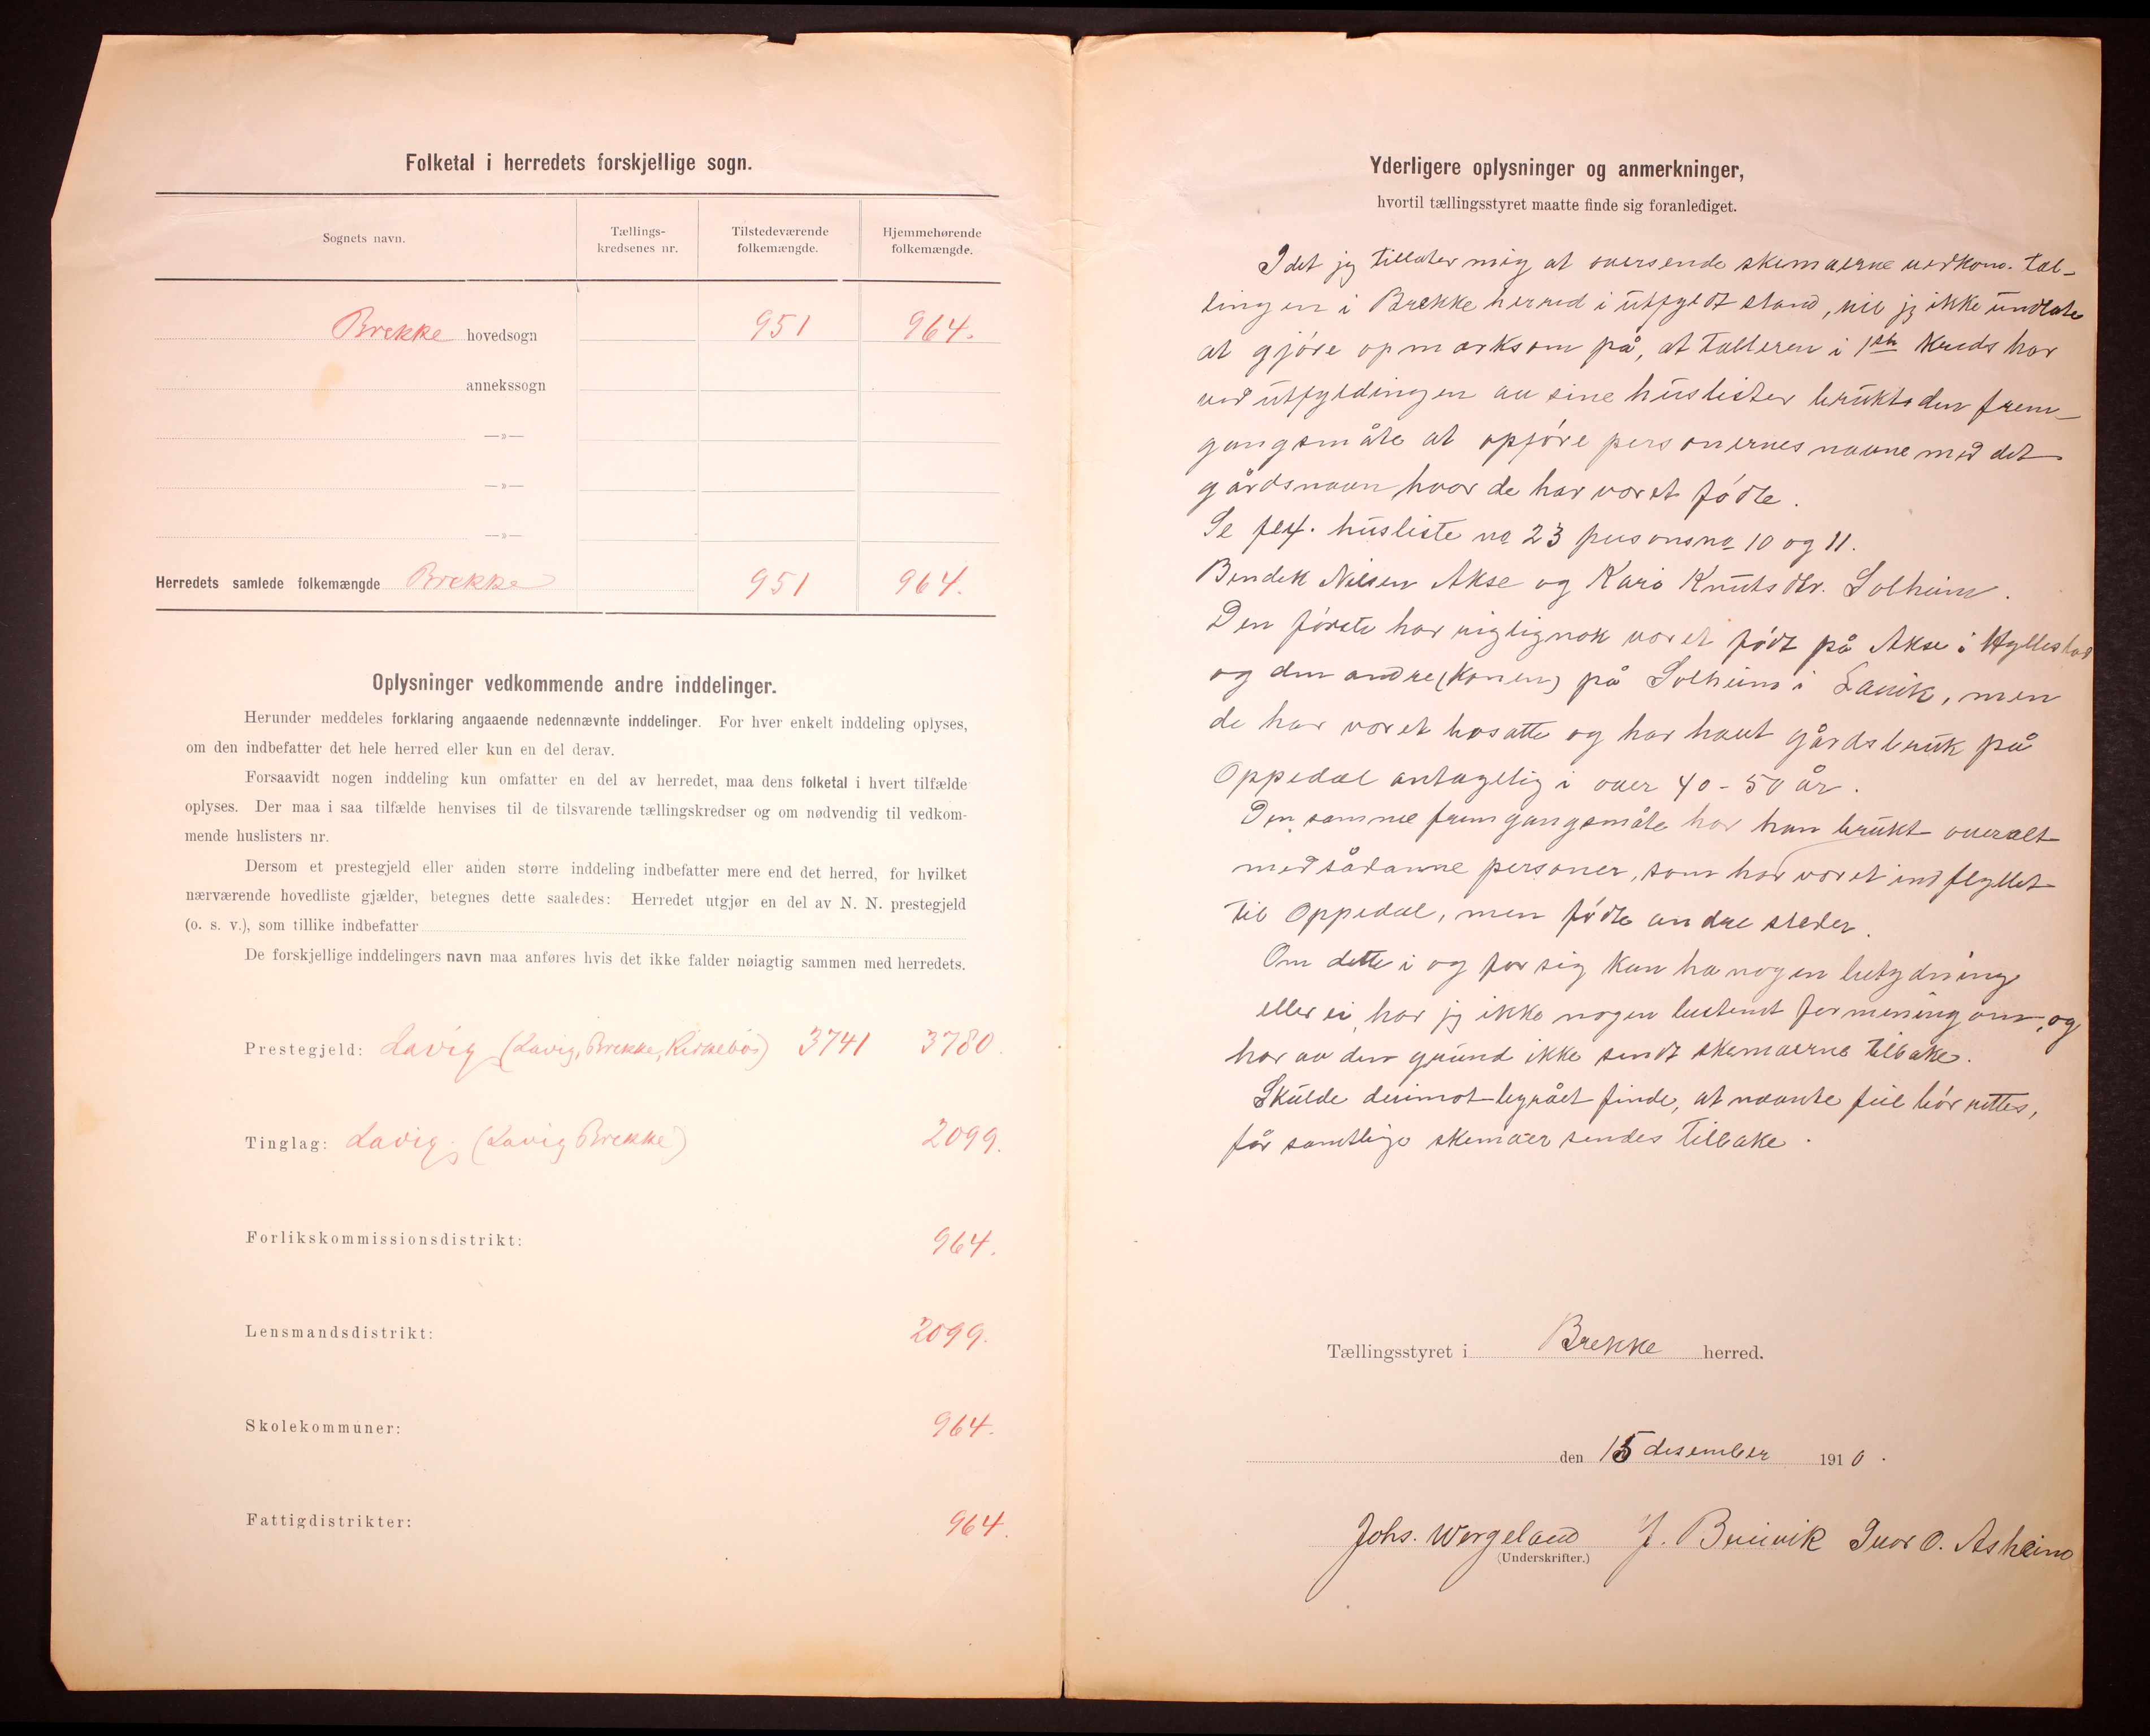 Folketal i herredets forskjellige sogn.
Sognets navn.
Tællings-
kredsenes nr.
Tilstedeværende
folkemængde.
Hjemmehørende
folkemængde.
Brekke hovedsogn 951 964.
annekssogn
—»—
—»—
—»—
Herredets samlede folkemængde Brekke 951 964.
Oplysninger vedkommende andre inddelinger.
Herunder meddeles forklaring angaaende nedennævnte inddelinger. For hver enkelt inddeling oplyses,
om den indbefatter det hele herred eller kun en del derav.
Forsaavidt nogen inddeling kun omfatter en del av herredet, maa dens folketal i hvert tilfælde
oplyses. Der maa i saa tilfælde henvises til de tilsvarende tællingskredser og om nødvendig til vedkom-
mende huslisters nr.
Dersom et prestegjeld eller anden større inddeling indbefatter mere end det herred, for hvilket
nærværende hovedliste gjælder, betegnes dette saaledes: Herredet utgjør en del av N. N. prestegjeld
(o. s. v.), som tillike indbefatter
De forskjellige inddelingers navn maa anføres hvis det ikke falder nøiagtig sammen med herredets.
Prestegjeld: Lavig (Lavig, Brekke, Kirkebös) 3741 3780.
Tinglag: Lavig. (Lavig, Brekke) 2099.
Forlikskommissionsdistrikt: 964.
Lensmandsdistrikt: 2099.
Skolekommuner: 964.
Fattigdistrikter: 964.
Yderligere oplysninger og anmerkninger,
hvortil tællingsstyret maatte finde sig foranlediget.
Idet jeg tillater mig at oversende skemaerne vedkom. tæl-
lingen i Brekke herred i utfyldt stand, vil jeg ikke undlate
at gjöre opmerksom på, at tælleren i 1ste kreds har
ved utfyldingen av sine huslister brukt den frem-
gangsmåte at opföre personernes navne med det
gårdsnavn hvor de har været födte.
Se f.ex. husliste no 23 personsno 10 og 11.
Bendik Nilsen Akse og Kari Knutsdtr. Solheim.
Den förste har rigtignok været födt på Akse i Hyllestad
og den andre (konen) på Solheim i Lavik, men
de har været bosatte og har havt gårdsbruk på
Oppedal antagelig i over 40 - 50 år.
Den samme fremgangsmåte har han brukt overalt
med sådanne personer, som har været indflyttet
til Oppedal, men födte andre steder.
Om dette i og for sig kan ha nogen betydning
eller ei, har jeg ikke nogen bestemt formening om, og
har av den grund ikke sendt skemaerne tilbake.
Skulde derimot byrået finde, at nævnte feil bör rettes,
får samtlige skemaer sendes tilbake.
Tællingsstyret i Brekke herred.
den 15 desember 1910.
Johs. Wergeland J. Breivik Ivar O. Asheim
(Underskrifter.)